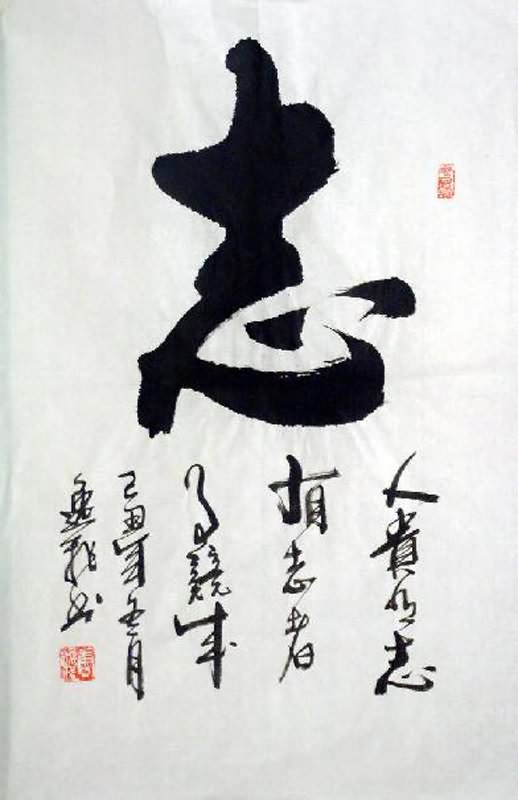 志
人貴有志
有志者
事競成
己丑年五月
書